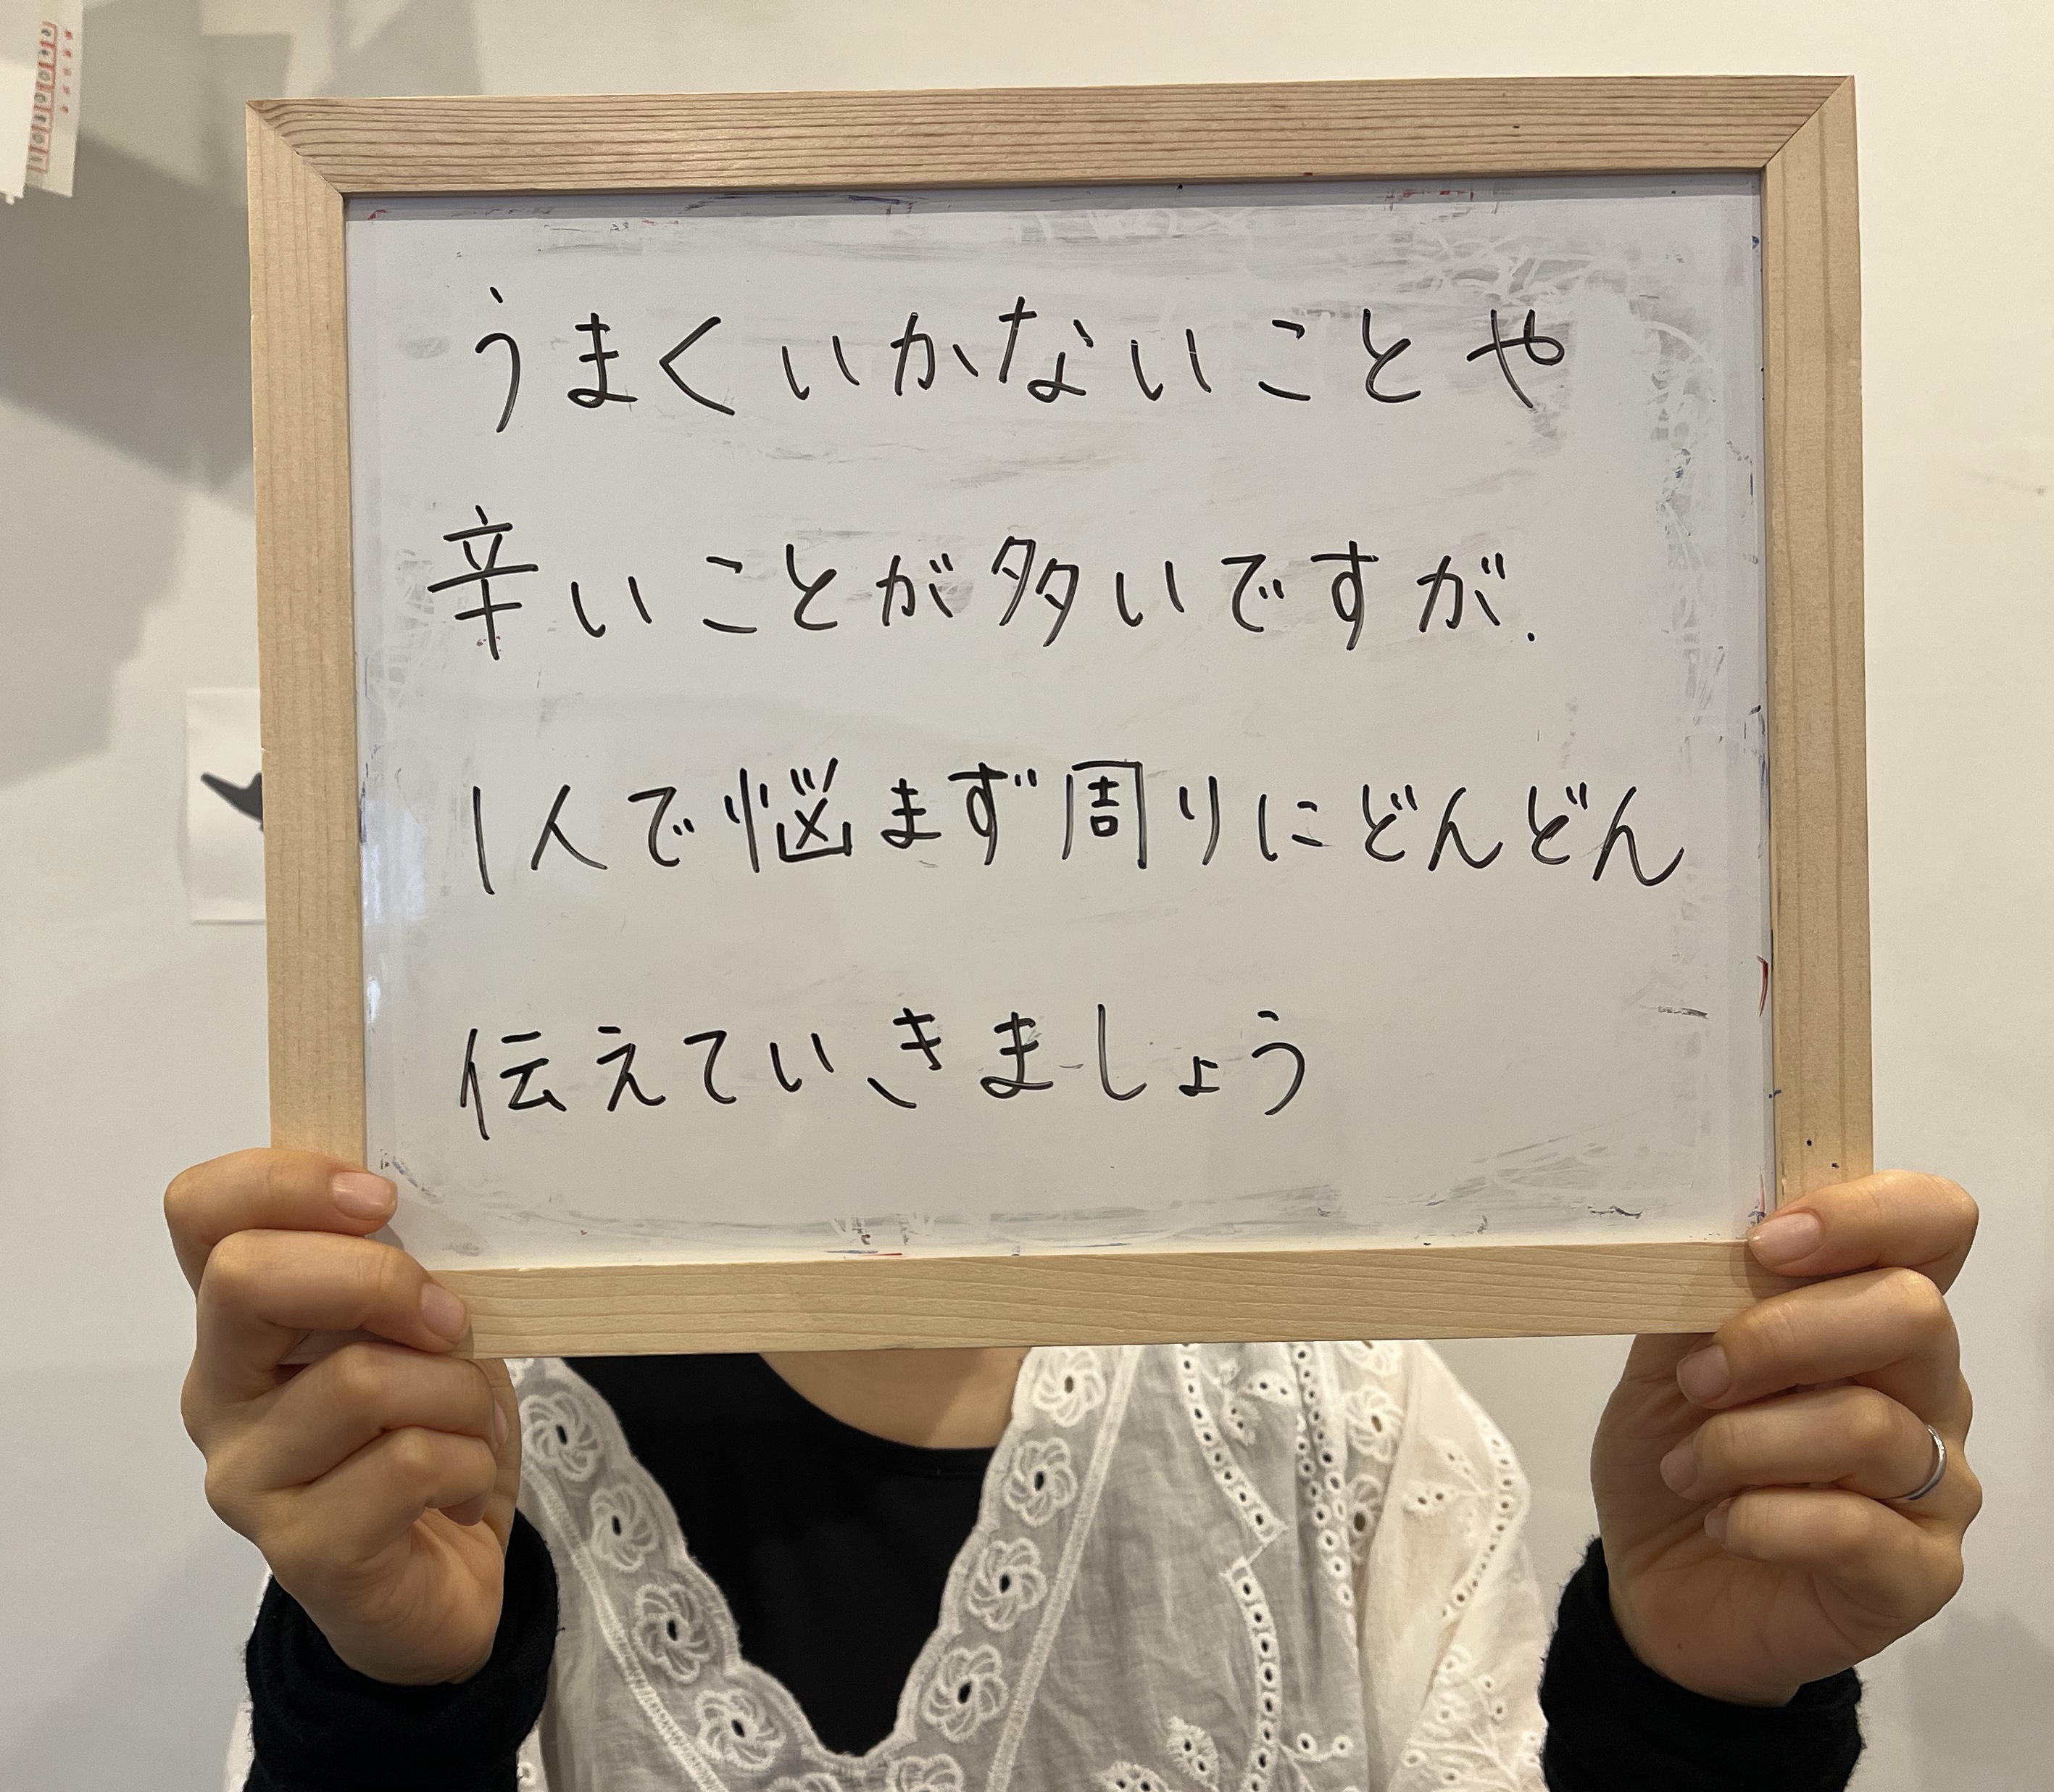 うまくいかないことや
辛いことが多いですが.
1人で悩まず周りにどんどん
伝えていきましょう